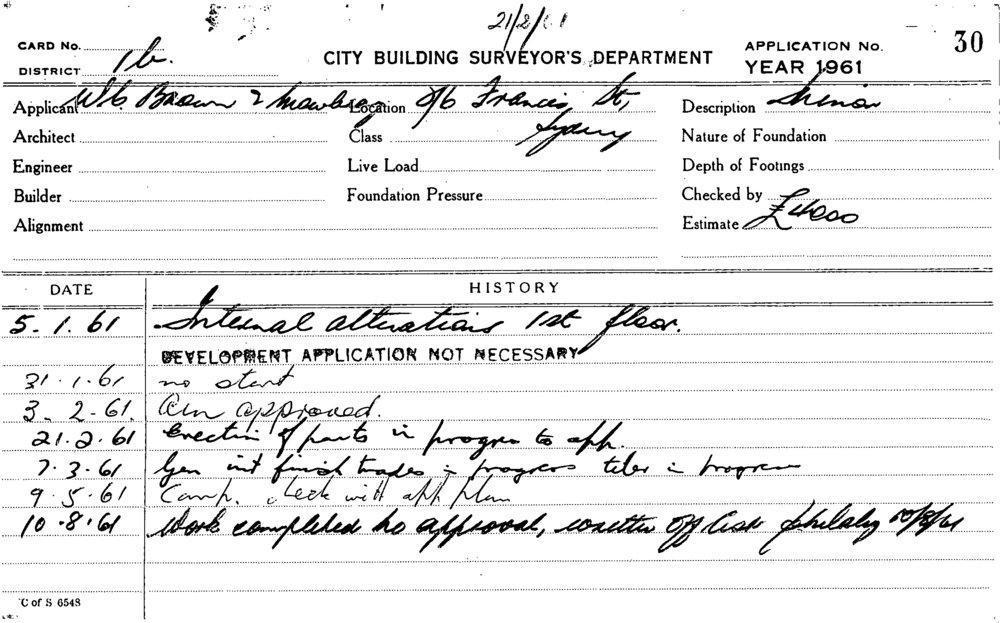 21/2/61
CARD No.
DISTRICT 1b.
CITY BUILDING SURVEYOR'S DEPARTMENT
APPLICATION No. 30
YEAR 1961
Applicant Brown & Location Francis St,
Sydney
Description Minor
Architect
Class
Nature of Foundation
Engineer
Live Load
Depth of Footings
Builder
Foundation Pressure
Checked by
Alignment
Estimate £4000
DATE HISTORY
5. 1. 61 Internal alterations 1st floor.
DEVELOPMENT APPLICATION NOT NECESSARY
31. 1. 61 no start
3. 2. 61. approved.
21. 2. 61 Erection of parts in progress to app.
7. 3. 61 Gen int finish trades in progress tiler in progress
9. 5. 61 Comp. check with app plan
10. 8. 61 Work completed to approval, written off 10/8/61
C of S 6548